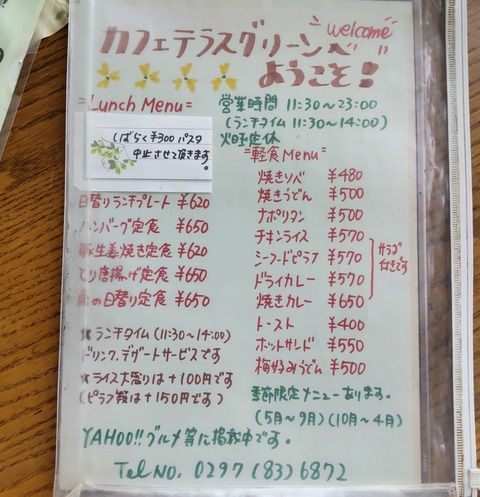 welcome
カフェテラスグリーンへ
ようこそ!
=Lunch Menu=
しばらく¥300パスタ
中止させて頂きます。
日替りランチプレート ¥620
ハンバーグ定食 ¥650
豚生姜焼き定食 ¥620
とり唐揚げ定食 ¥650
の日替り定食 ¥650
★ランチタイム(11:30~14:00)
ドリンク、デザートサービスです
★ライス大盛りは+100円です
(ピラフ類は+150円です)
営業時間 11:30~23:00
(ランチタイム 11:30~14:00)
火曜定休
=軽食Menu=
焼きソバ ¥480
焼きうどん ¥500
ナポリタン ¥500
チキンライス ¥570
シーフードピラフ ¥570
ドライカレー ¥570
焼きカレー ¥650
サラダ
付きです
トースト ¥400
ホットサンド ¥550
梅好みうどん ¥500
季節限定メニューあります。
(5月~9月)(10月~4月)
YAHOO!!グルメ等に掲載中です。
Tel NO. 0297(83)6872